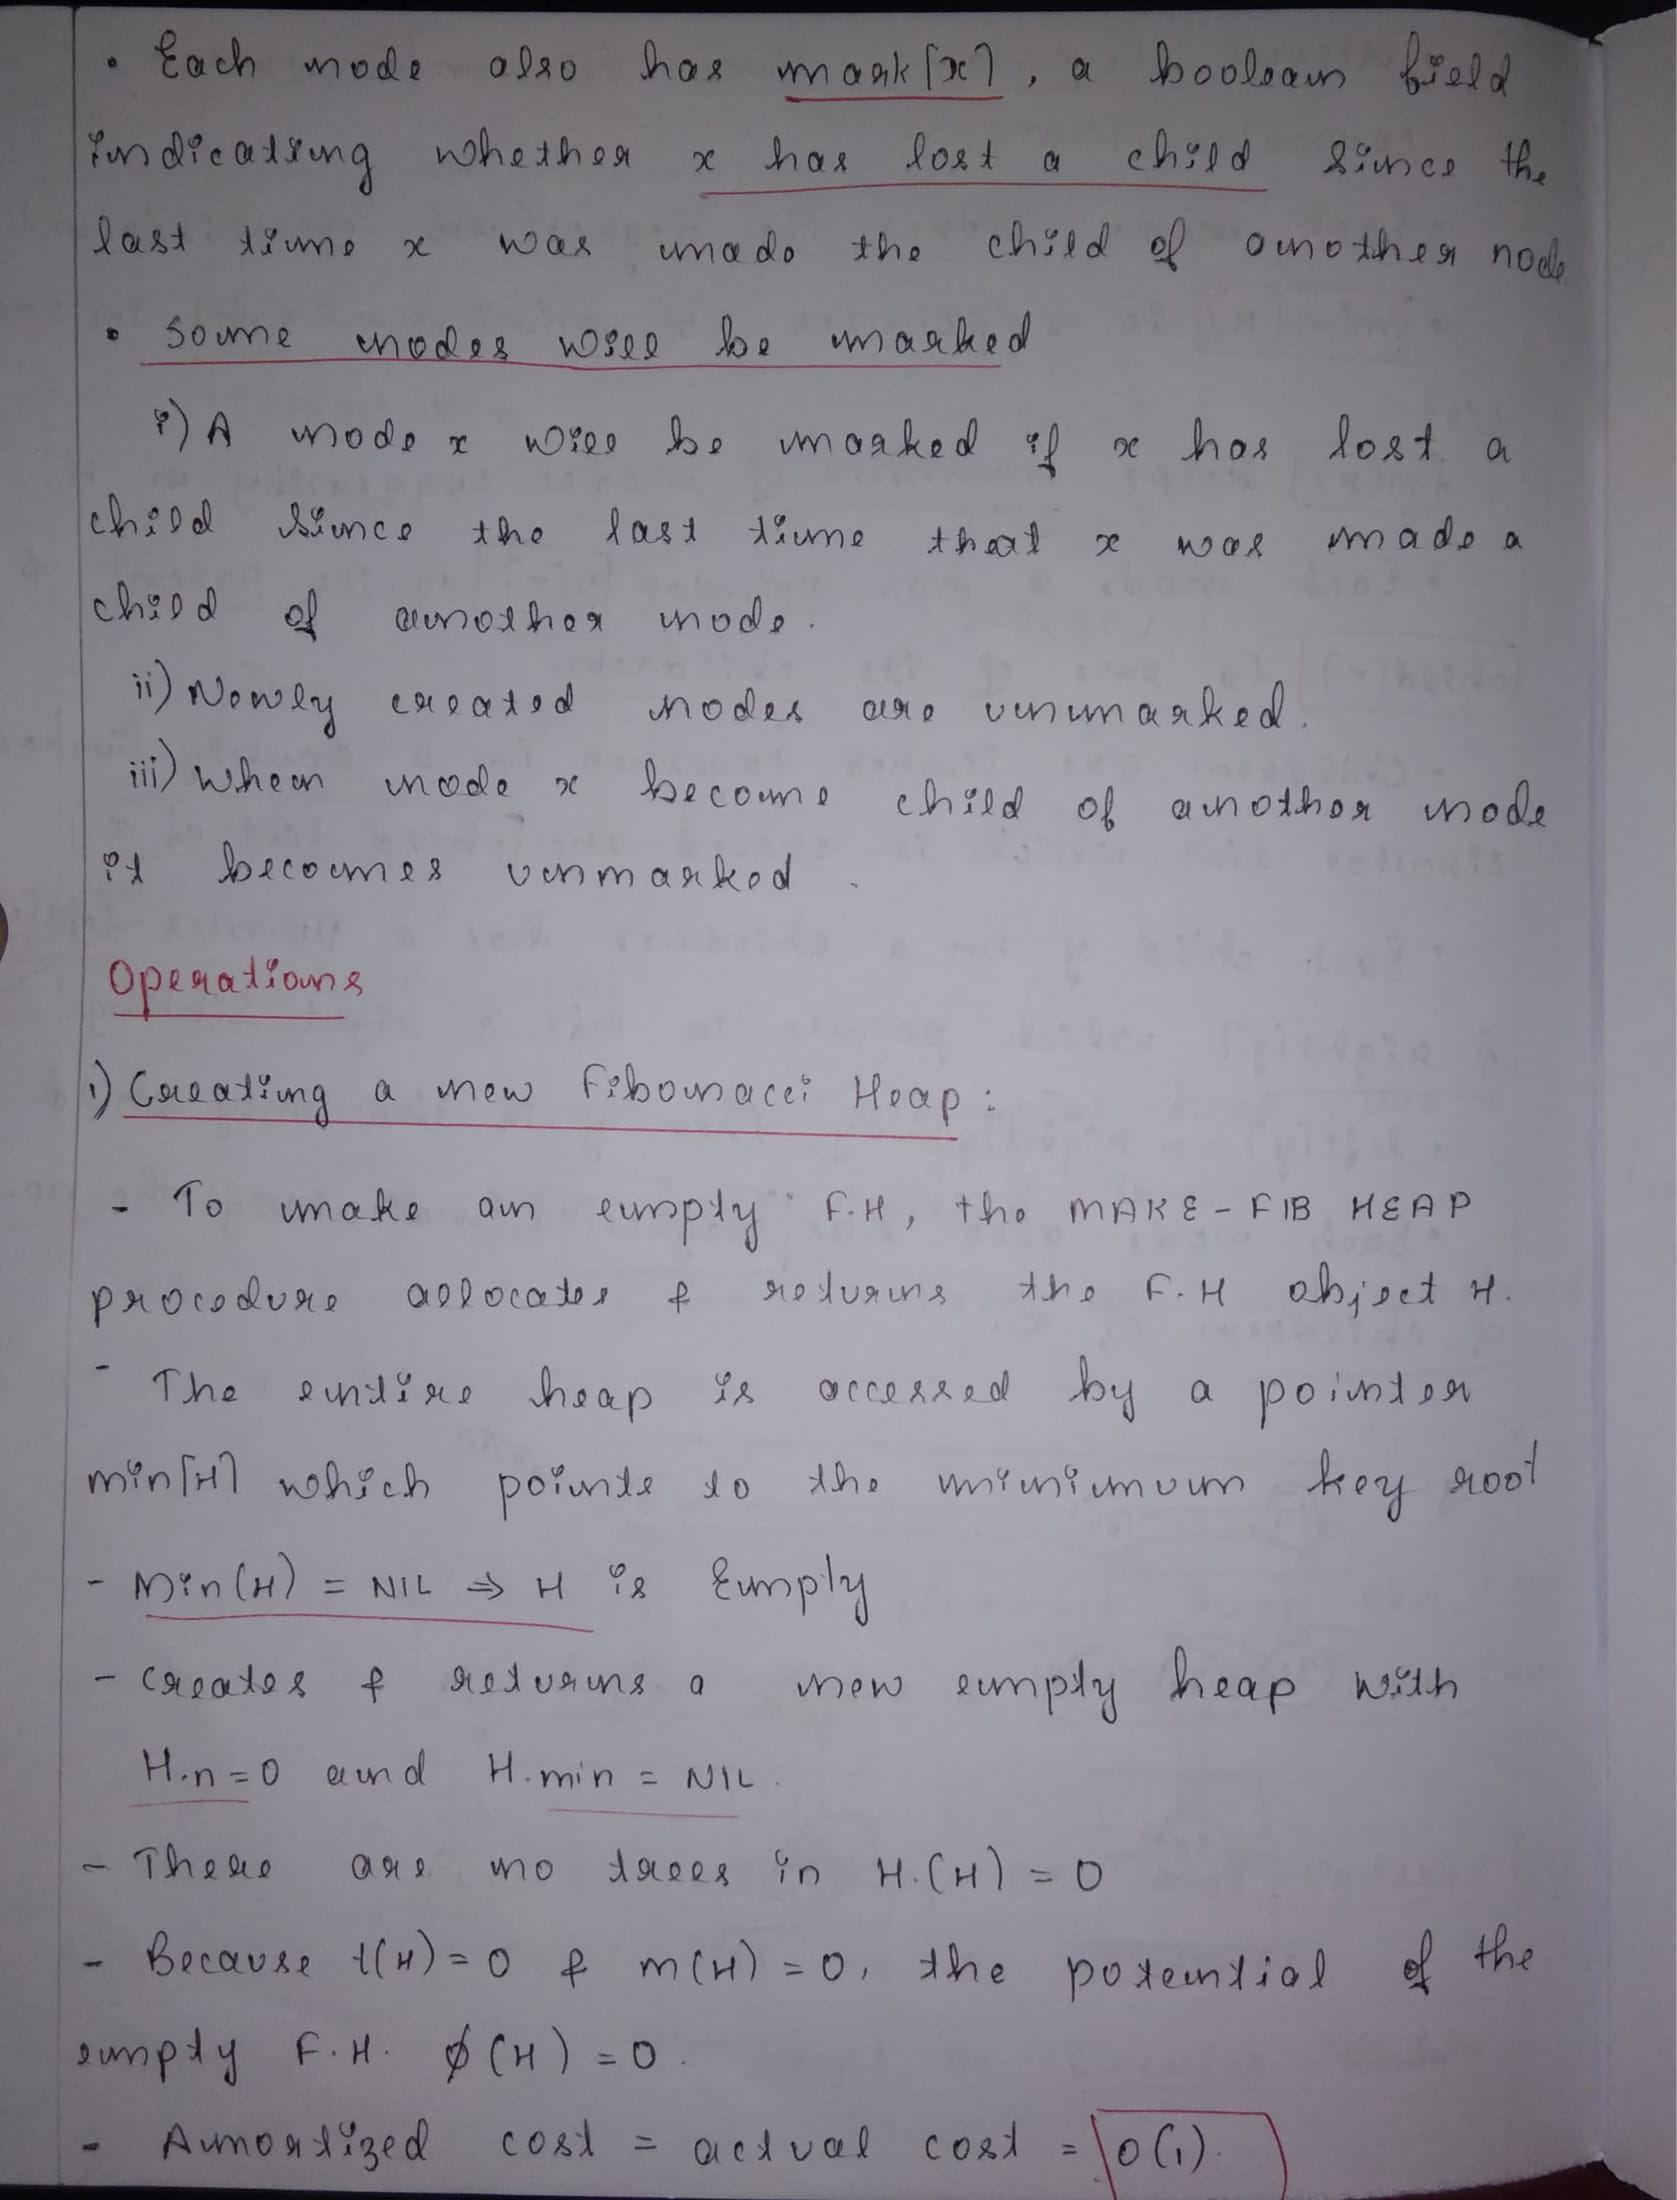 • Each node also has mark[x], a boolean field
indicating whether x has lost a child since the
last time x was made the child of another node
• Some nodes will be marked
i) A node x will be marked if x has lost a
child since the last time that x was made a
child of another node.
ii) Newly created nodes are unmarked.
iii) When node x become child of another node
it becomes unmarked.
Operations
1) Creating a new Fibonacci Heap:
- To make an empty F.H, the MAKE-FIB HEAP
procedure allocates & returns the F.H object H.
- The entire heap is accessed by a pointer
min[H] which points to the minimum key root
- Min(H) = NIL ⇒ H is Empty
- Creates & returns a new empty heap with
H.n=0 and H.min = NIL.
- There are no trees in H.(H) = 0
- Because t(H)=0 & m(H)=0, the potential of the
empty F.H. ϕ(H) = 0.
- Amortized cost = actual cost = O(1).